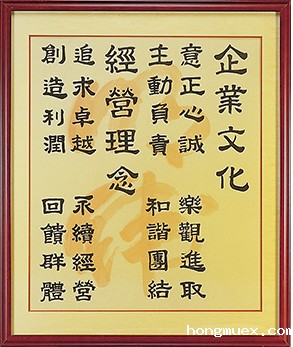 企業文化
意正心誠 樂觀進取
主動負責 和諧團結
經營理念
追求卓越 永續經營
創造利潤 回饋群體
hongmuex.com